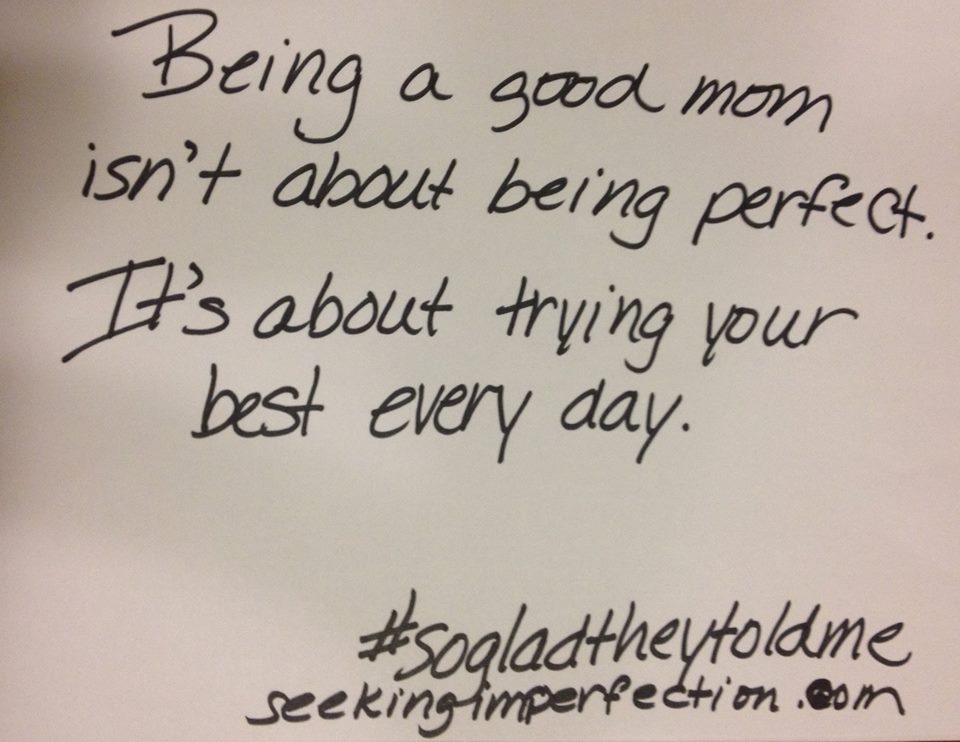 Being a good mom
isn't about being perfect.
It's about trying your
best every day.
#sogladtheytoldme
seekingimperfection.com